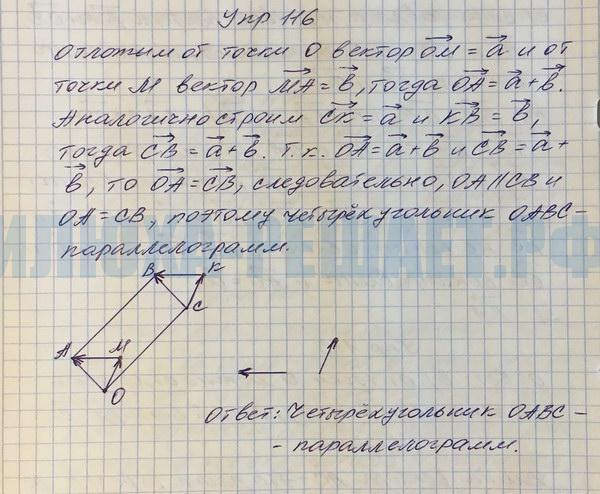 Упр 116
Отложим от точки O вектор OM = a и от
точки M вектор MA = b, тогда OA = a + b.
Аналогично строим CK = a и KB = b,
тогда CB = a + b. Т.к. OA = a + b и CB = a +
b, то OA = CB, следовательно, OA || CB и
OA = CB, поэтому четырёхугольник OABC -
параллелограмм.
B K
C
A M
O
Ответ: Четырёхугольник OABC -
- параллелограмм.